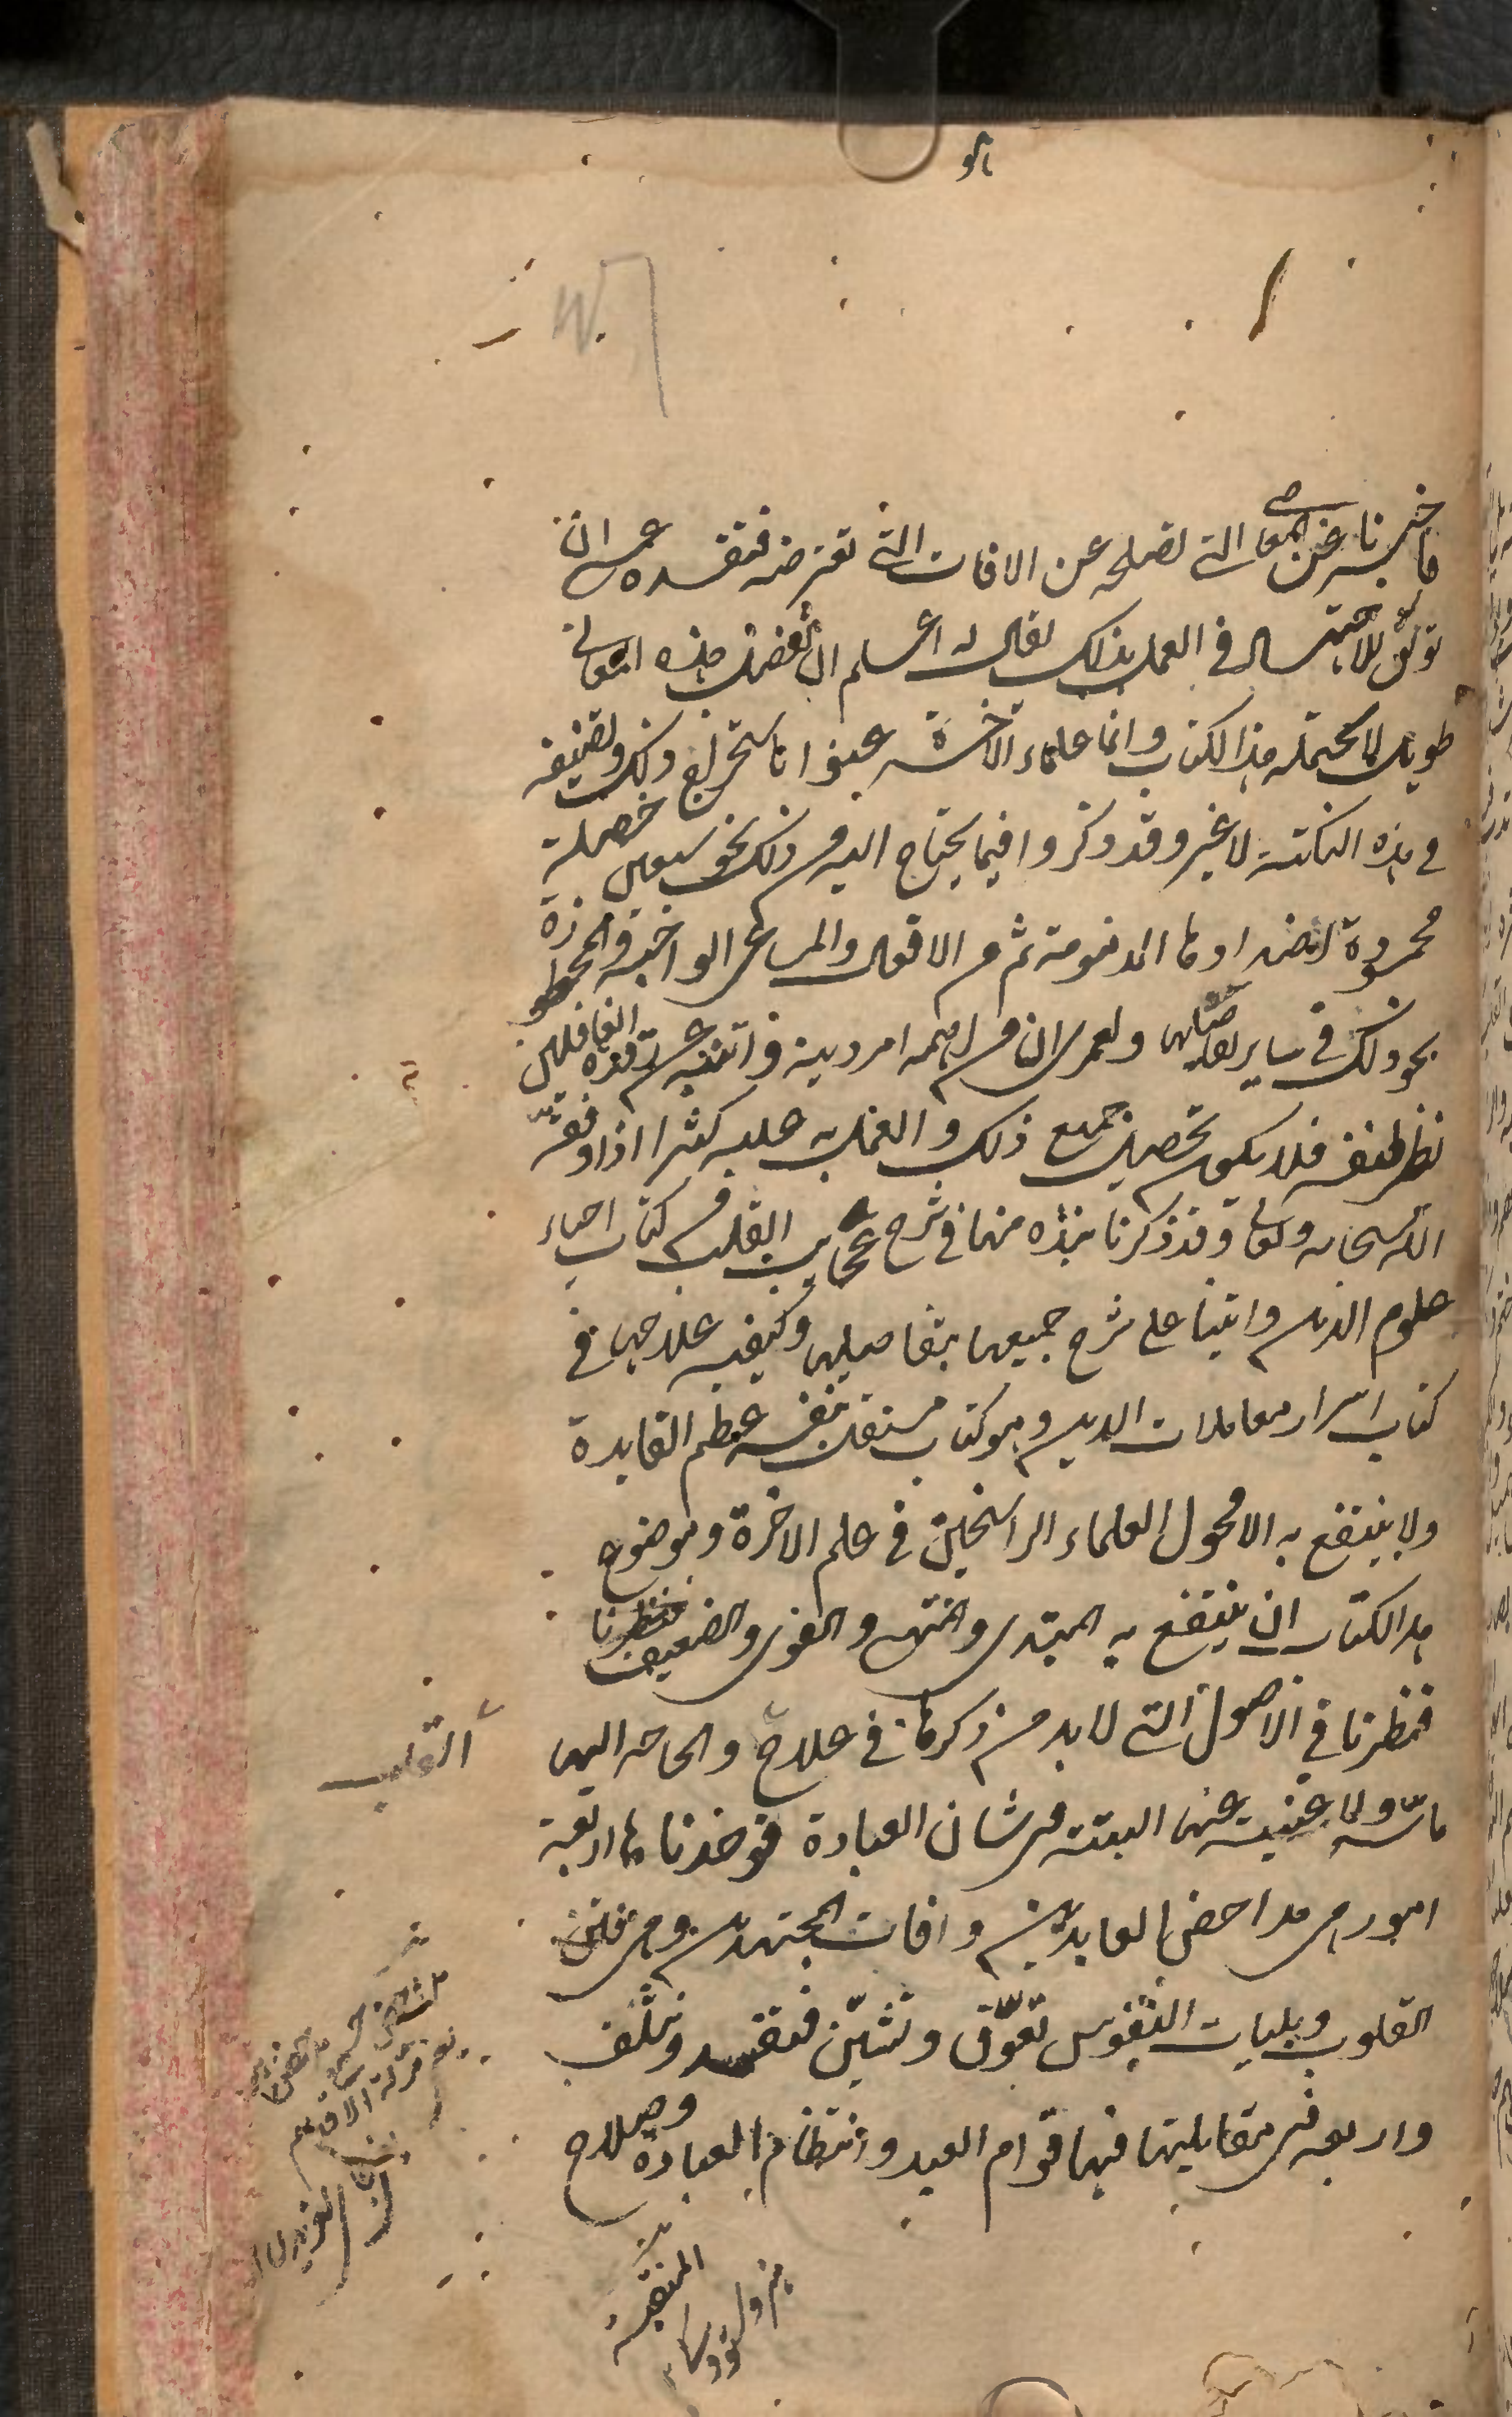 فاخبرنا عن المعاني التي تصلحه عن الافات التي تعترضه فتفسده عسى ان
نوفق للاجتهاد في العمل بذلك يقال له اعلم ان تفصيل هذه المعاني
طويل لا يحتمله هذا الكتاب وانما علماء الاخرة عنوا باستخراج ذلك وتصنيفه
في هذه النكتة لا غير وقد ذكروا فيما يحتاج اليه من ذلك نحو سبعين خصلة
محمودة لضد ادها المذمومة ثم من الافعال والمساعي الواجبة والمحظورة
نحو ذلك في ساير تفاصيلها ولعمري ان من اهمه امر دينه وانتبه من رقدة الغافلين
نظر لنفسه فلا يكون تحصيل جميع ذلك والعمل به عليه كثيرا اذا وفقه
الله سبحانه وتعالى وقد ذكرنا نبذه منها في شرح عجايب القلب من كتاب احياء
علوم الدين واتينا على شرح جميعها بتفاصيلها وكيفيه علاجها في
كتاب اسرار معاملات الدين وهو كتاب مستقل بنفسه عظيم الفايدة
ولا ينتفع به الا فحول العلماء الراسخين في علم الاخرة وموضوع
هذا الكتاب ان ينتفع به المبتدي والمنتهي والقوي والضعيف فنظرنا
فنظرنا في الاصول التي لابد من ذكرها في علاج والحاجه اليها
القلب
ماسة ولا غنية عنها البتة في شان العبادة فوجدناها اربعة
امور هي مداحض العابدين وافات المجتهدين وهي فتن
القلوب وبليات النفوس تعوق وتشين فتفسد وتتلف
واربعه في مقابلتها فيها قوام العبد وانتظام العبادة وصلاح